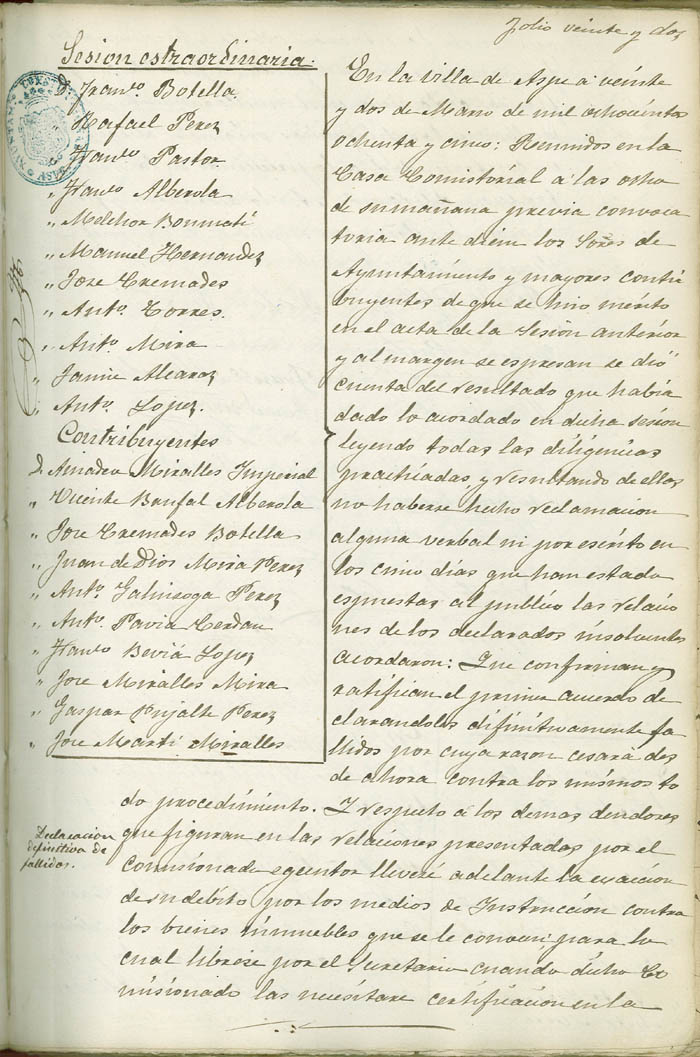 Folio veinte y dos
Sesion estraordinaria.
D. Franco. Botella.
" Rafael Perez
" Franco Pastor
" Franco Alberola
" Melchor Bonmatí
" Manuel Hernandez
" Jose Cremades
" Anto. Torres.
" Anto. Mira
" Jaime Alcaraz
" Anto. Lopez.
Contribuyentes
D. Amadeo Miralles Imperial
" Vicente Brufal Alberola
" Jose Cremades Botella
" Juan de Dios Mira Perez
" Anto. Galinsoga Perez
" Anto. Pavia Cerdan
" Franco Beviá Lopez
" Jose Miralles Mira
" Gaspar Pujalte Perez
" Jose Martí Miralles
En la villa de Aspe a veinte
y dos de Marzo de mil ochocientos
ochenta y cinco: Reunidos en la
Casa Comistorial a las ocho
de su mañana previa convoca
toria ante diem los Sores de
Ayuntamiento y mayores contri
buyentes de que se hizo mérito
en el acta de la Sesion anterior
y al margen se espresan se dió
cuenta del resultado que había
dado lo acordado en dicha sesión
leyendo todas las diligencias
practicadas, y resultando de ellas
no haberse hecho reclamacion
alguna verbal ni por escrito en
los cinco días que han estado
espuestas al publico las relacio
nes de los declarados insolventes
acordaron: Que confirman y
ratifican el primer acuerdo de
clarandoles difinitivamente fa
llidos por cuya razon cesará des
de ahora contra los mismos to
do procedimiento. Y respecto á los demas deudores
que figuran en las relaciones presentadas por el
Comisionado egecutor llevese adelante la exaccion
de su debito por los medios de Instruccion contra
los bienes inmuebles que se le conocen, para lo
cual librese por el Secretario cuando dicho Co
misionado las necesitare certificacion en la
Declaracion
difinitiva de
fallidos.